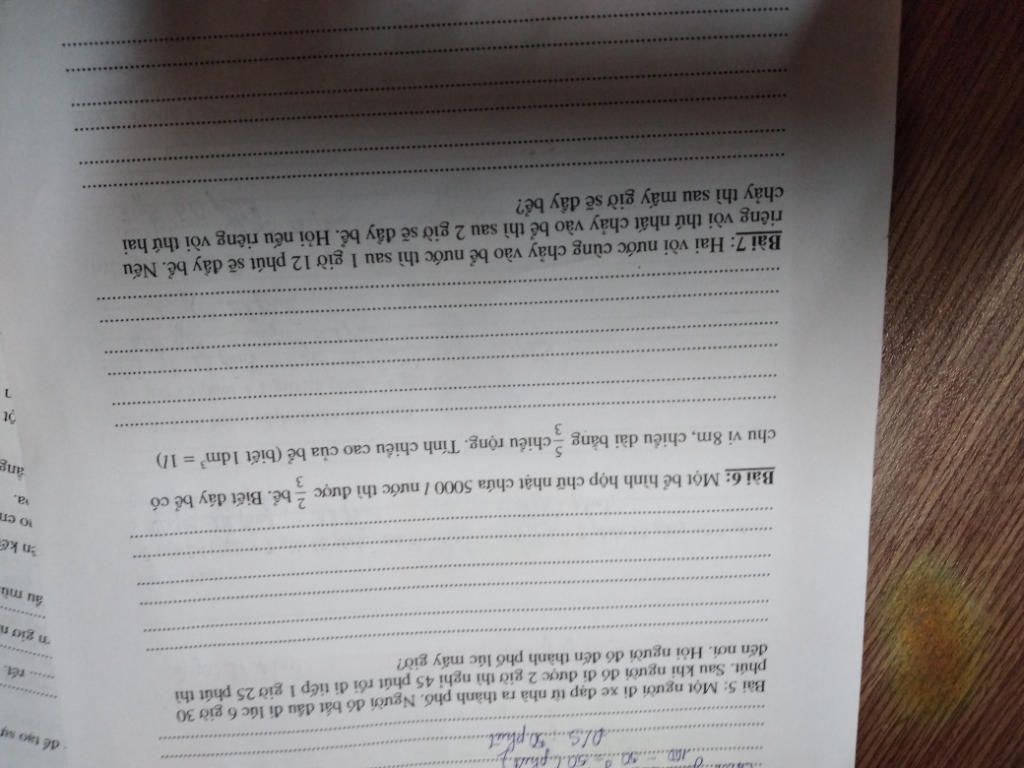 100 - 50 = 50 (phút)
Đ/S: 50 phút
Bài 5: Một người đi xe đạp từ nhà ra thành phố. Người đó bắt đầu đi lúc 6 giờ 30
phút. Sau khi người đó đi được 2 giờ thì nghỉ 45 phút rồi đi tiếp 1 giờ 25 phút thì
đến nơi. Hỏi người đó đến thành phố lúc mấy giờ?
Bài 6: Một bể hình hộp chữ nhật chứa 5000 l nước thì được 2/3 bể. Biết đáy bể có
chu vi 8m, chiều dài bằng 5/3 chiều rộng. Tính chiều cao của bể (biết 1dm³ = 1l)
Bài 7: Hai vòi nước cùng chảy vào bể nước thì sau 1 giờ 12 phút sẽ đầy bể. Nếu
riêng vòi thứ nhất chảy vào bể thì sau 2 giờ sẽ đầy bể. Hỏi nếu riêng vòi thứ hai
chảy thì sau mấy giờ sẽ đầy bể?
để tạo sự